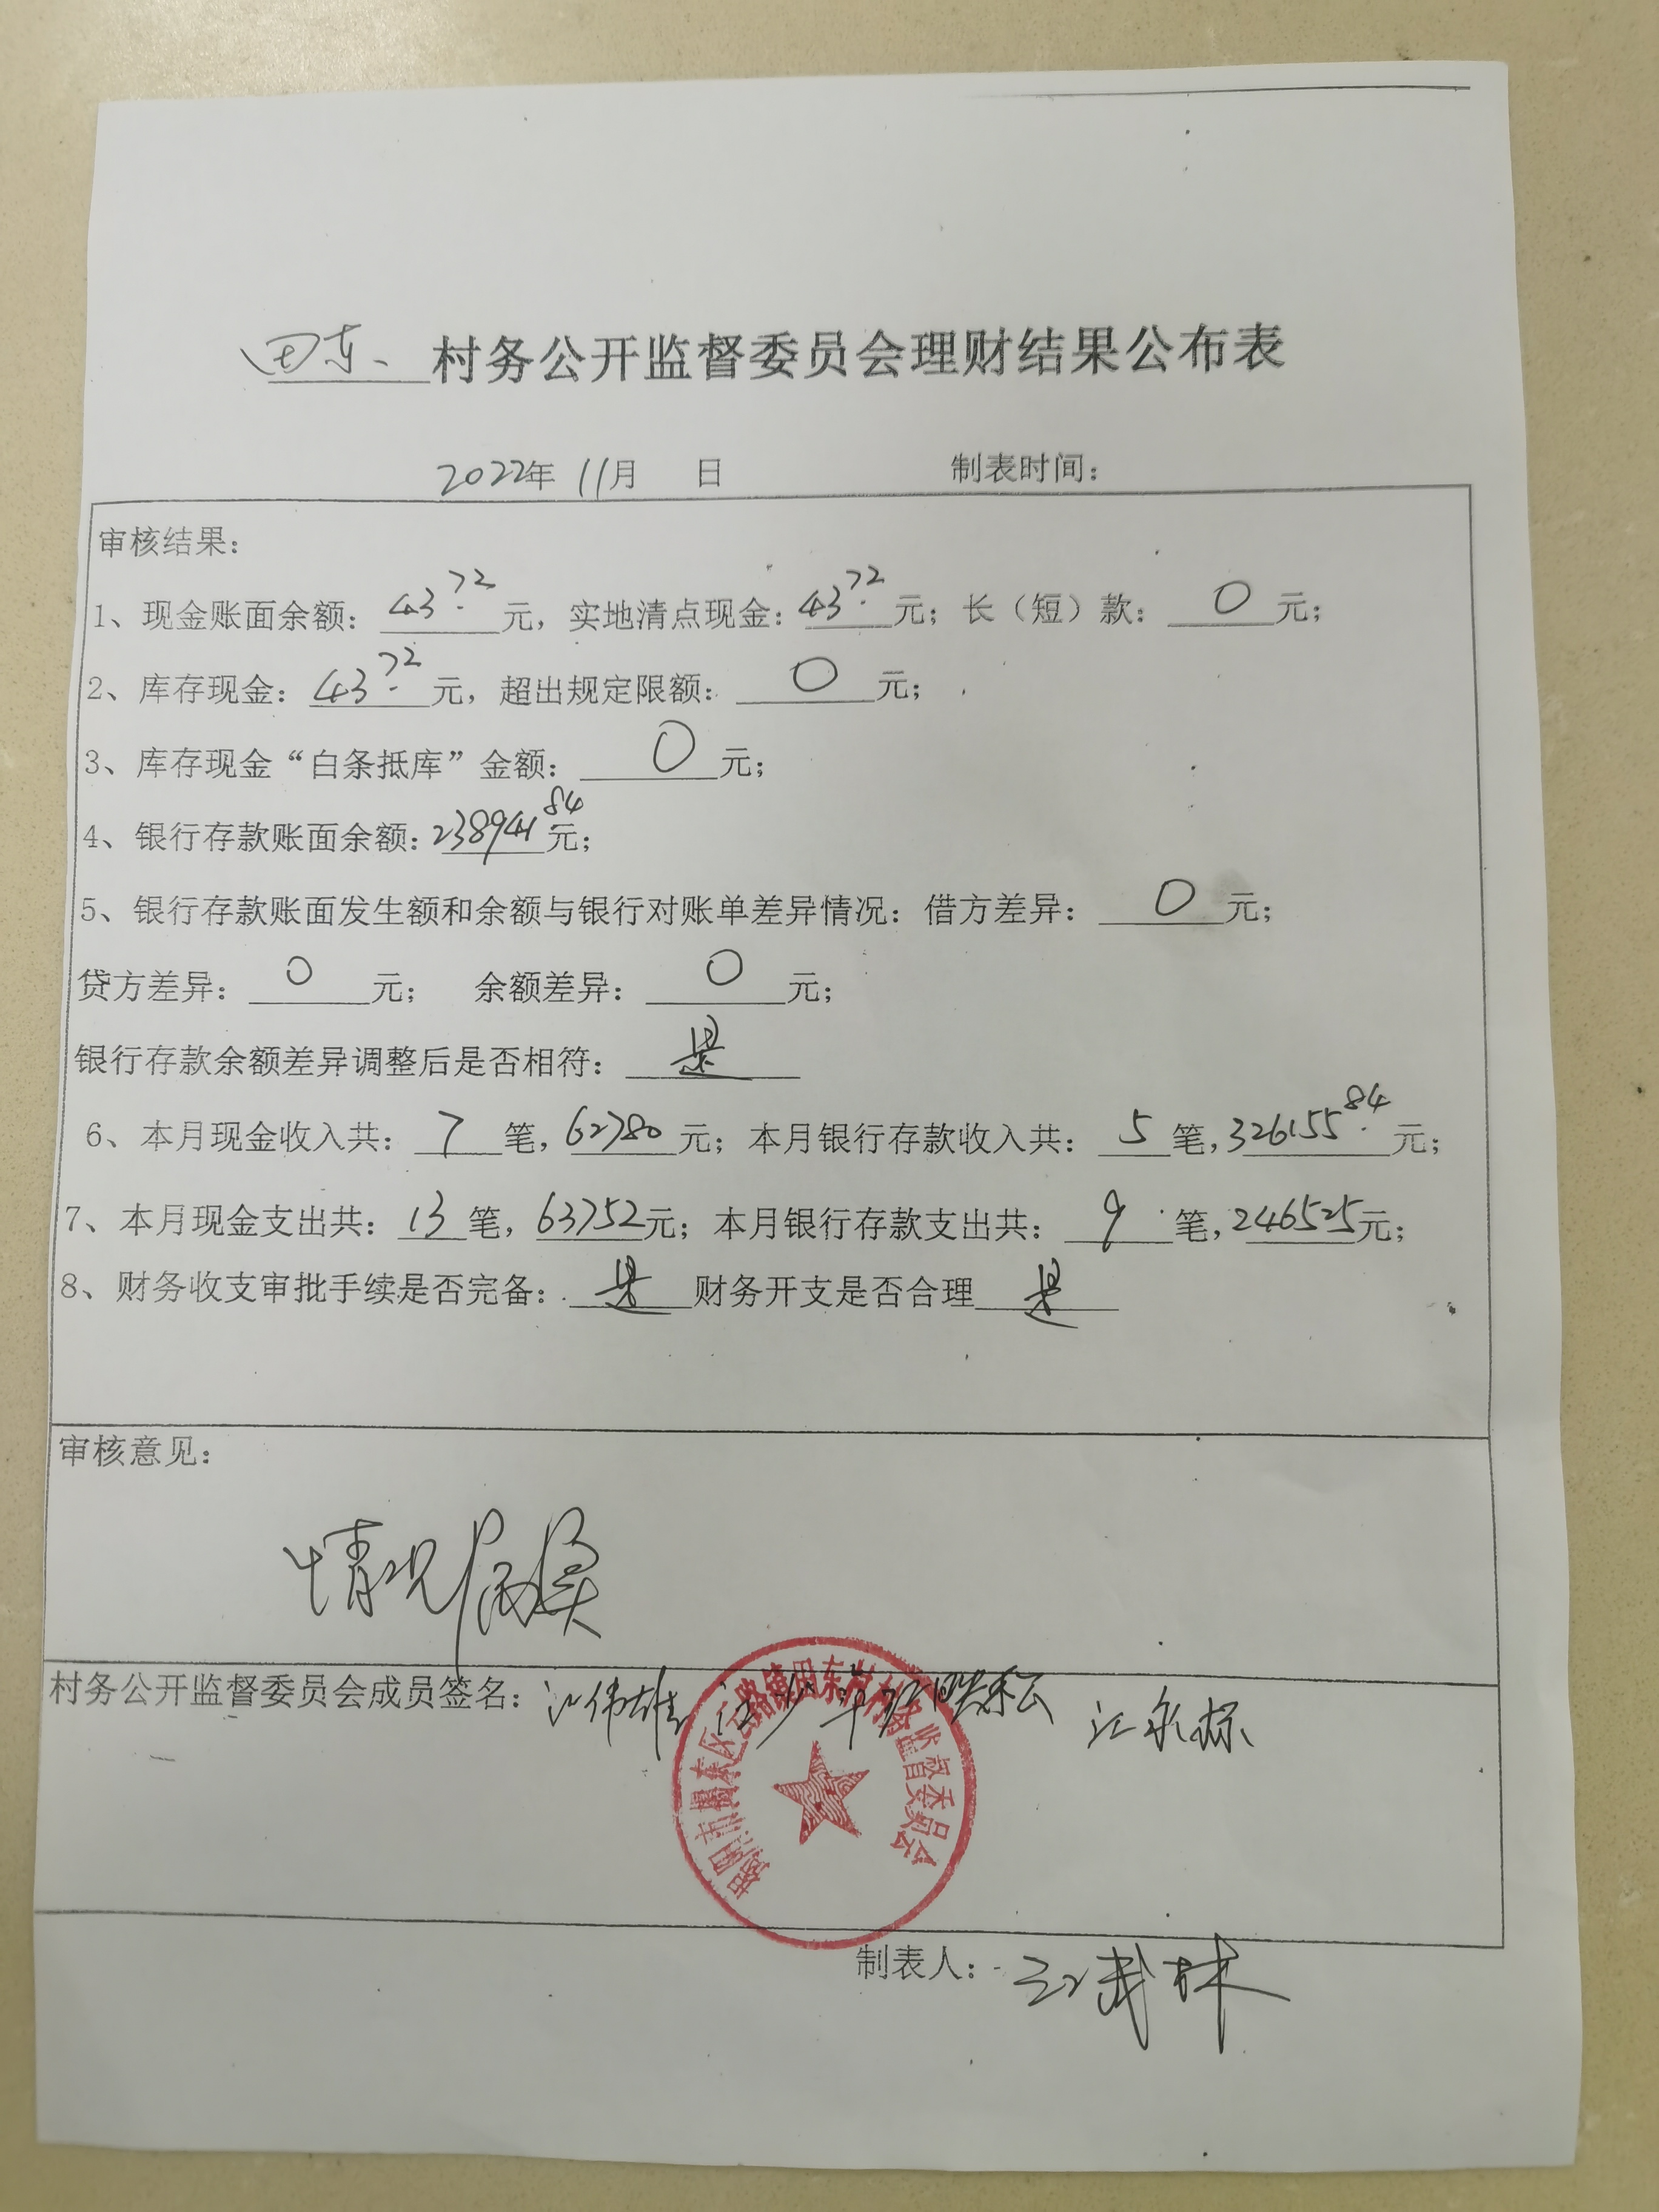 田东、村务公开监督委员会理财结果公布表
2022年 11月 日 制表时间：
审核结果：
1、现金账面余额：43.72元，实地清点现金：43.72元；长（短）款：0元；
2、库存现金：43.72元，超出规定限额：0元；
3、库存现金“白条抵库”金额：0元；
4、银行存款账面余额：238941 84元；
5、银行存款账面发生额和余额与银行对账单差异情况：借方差异：0元；
贷方差异：0元； 余额差异：0元；
银行存款余额差异调整后是否相符：是
6、本月现金收入共：7笔，62780元；本月银行存款收入共：5笔，326155.84元；
7、本月现金支出共：13笔，63752元；本月银行存款支出共：9笔，246525元；
8、财务收支审批手续是否完备：是 财务开支是否合理 是
审核意见：
情况属实
村务公开监督委员会成员签名：江伟雄 江少 江永标
揭阳市揭东区云路镇田东村村务监督委员会
制表人：江 林